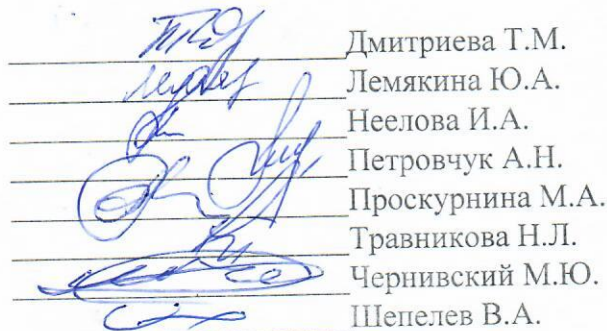 Дмитриева Т.М.
Лемякина Ю.А.
Неелова И.А.
Петровчук А.Н.
Проскурнина М.А.
Травникова Н.Л.
Чернивский М.Ю.
Шепелев В.А.